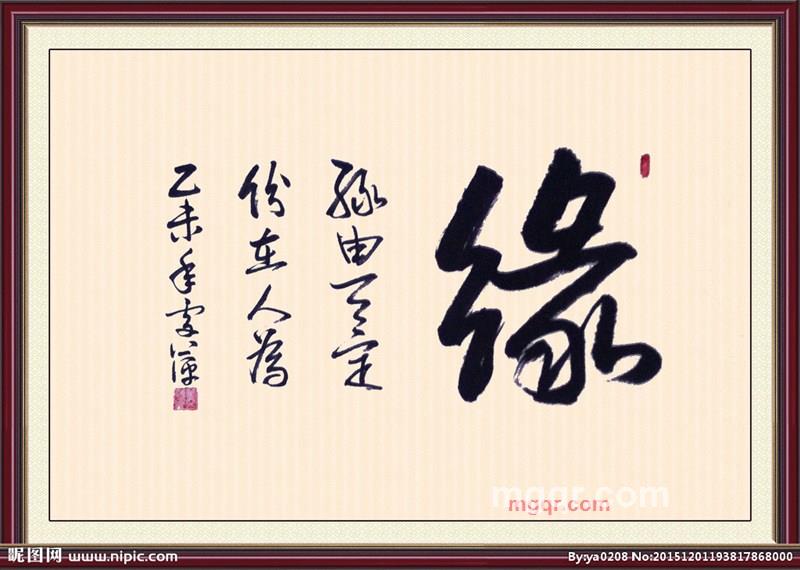 缘
缘由天定
份在人为
乙未年
mgqr.com
mgqr.com
昵图网 www.nipic.com
By:ya0208 No:20151201193817868000